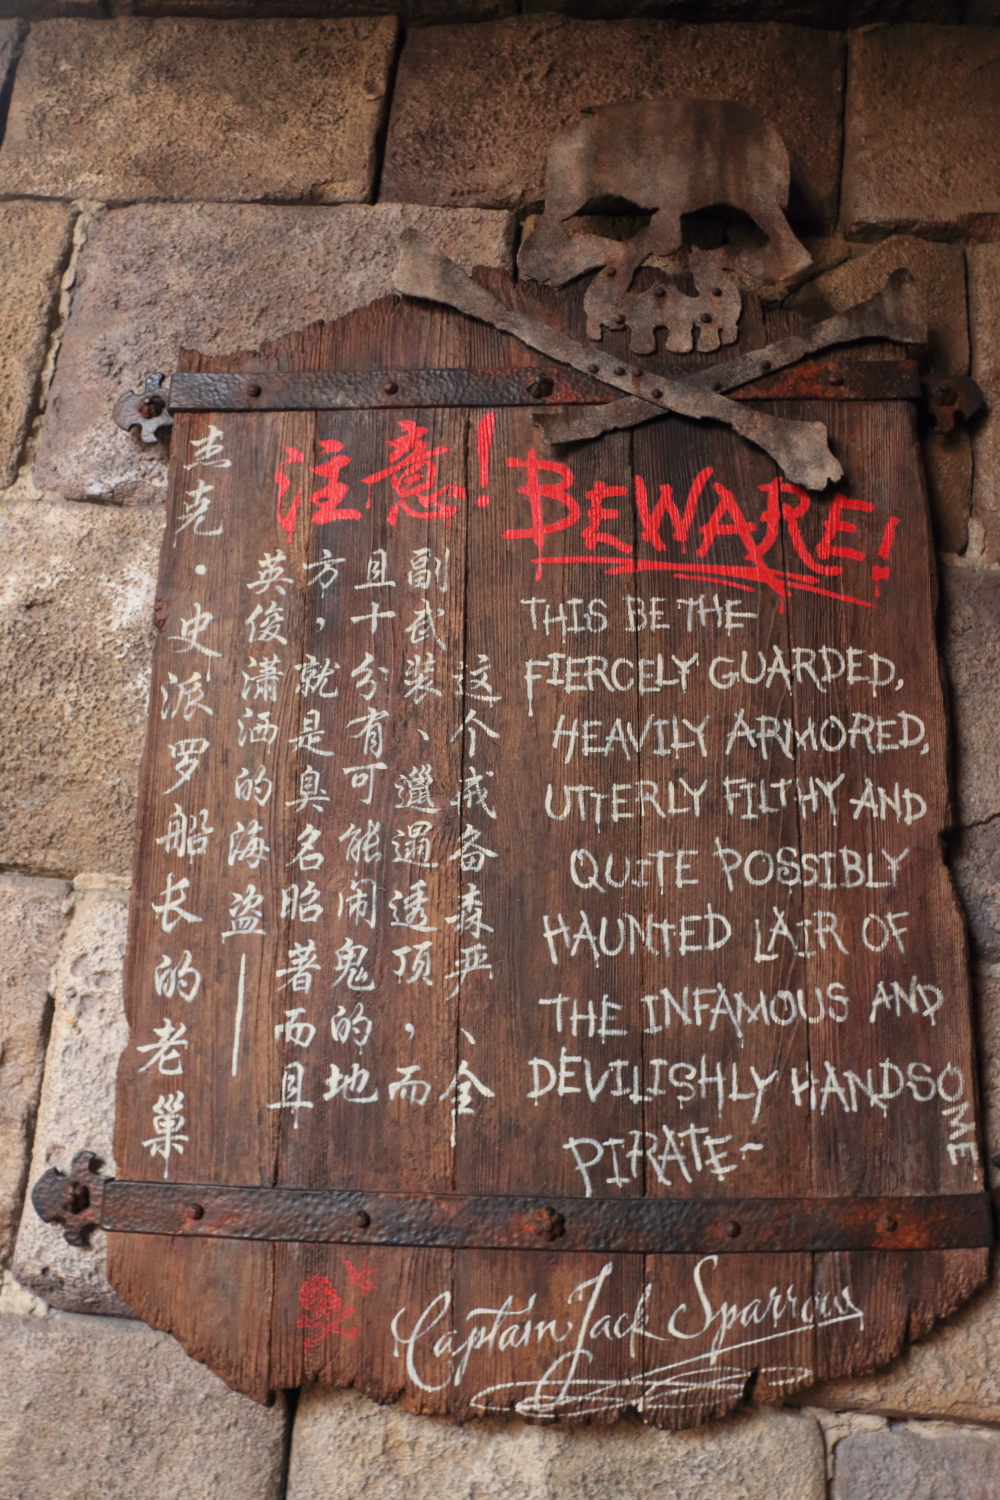 注意!
这个戒备森严、全
副武装、邋遢透顶，而
且十分有可能闹鬼的地
方，就是臭名昭著而且
英俊潇洒的海盗——
杰克·史派罗船长的老巢
BEWARE!
THIS BE THE
FIERCELY GUARDED,
HEAVILY ARMORED,
UTTERLY FILTHY AND
QUITE POSSIBLY
HAUNTED LAIR OF
THE INFAMOUS AND
DEVILISHLY HANDSOME
PIRATE~
Captain Jack Sparrow